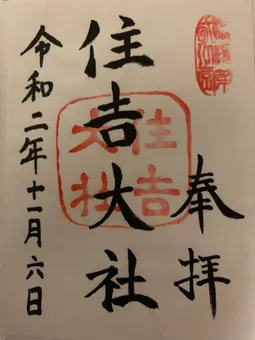 奉拝
住吉大社
住吉大社
令和二年十一月六日